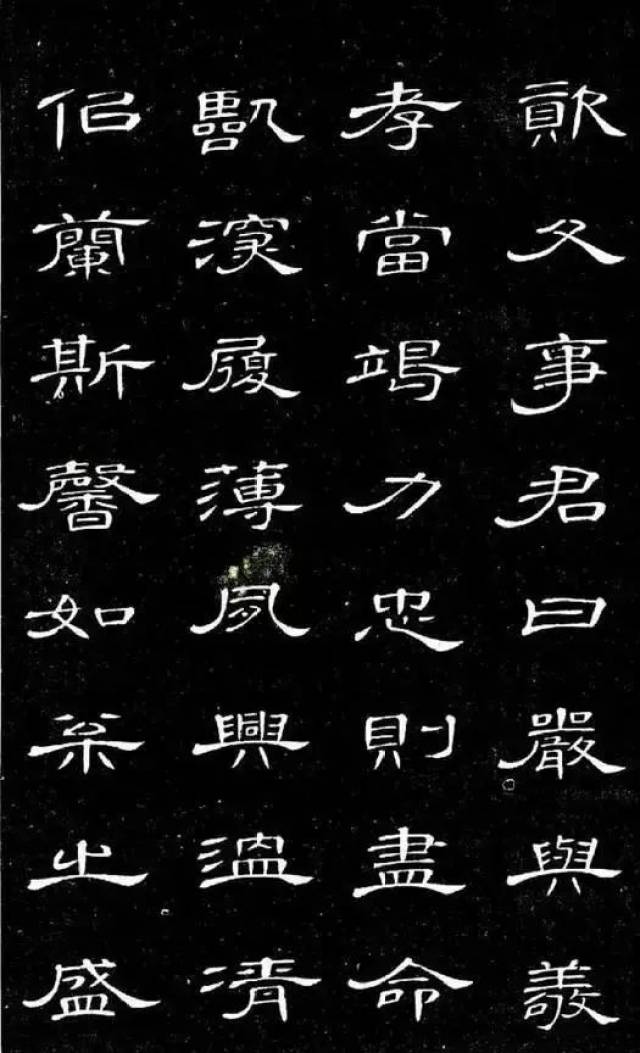 資父事君曰嚴與敬
孝當竭力忠則盡命
臨深履薄夙興溫凊
似蘭斯馨如松之盛